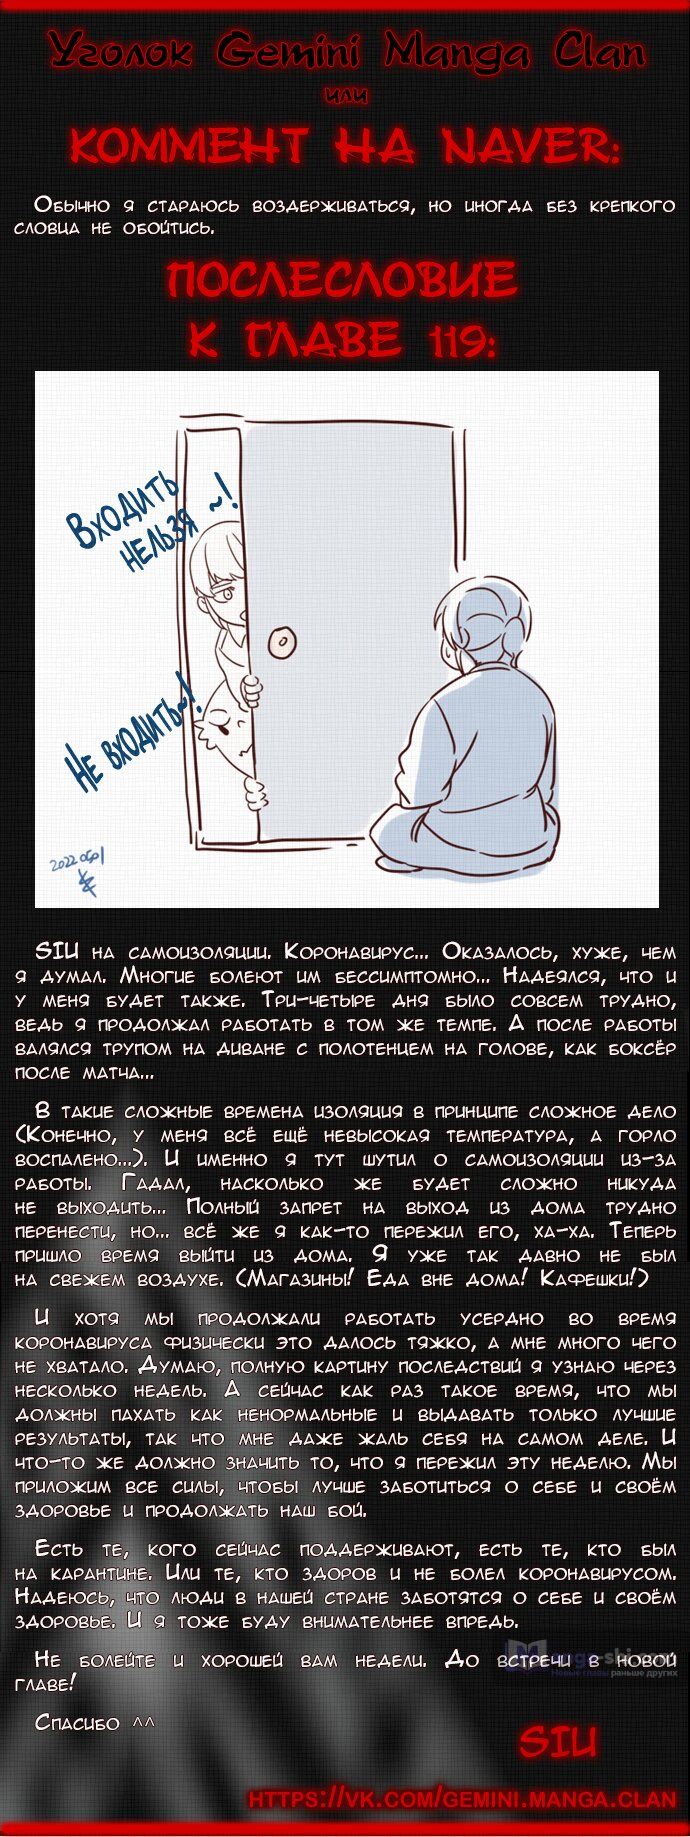 Уголок Gemini Manga Clan
или
КОММЕНТ НА NAVER:
Обычно я стараюсь воздерживаться, но иногда без крепкого
словца не обойтись.
ПОСЛЕСЛОВИЕ
К ГЛАВЕ 119:
Входить
нельзя ~!
Не входить~!
SIU на самоизоляции. Коронавирус... Оказалось, хуже, чем
я думал. Многие болеют им бессимптомно... Надеялся, что и
у меня будет также. Три-четыре дня было совсем трудно,
ведь я продолжал работать в том же темпе. А после работы
валялся трупом на диване с полотенцем на голове, как боксёр
после матча...
В такие сложные времена изоляция в принципе сложное дело
(Конечно, у меня всё ещё невысокая температура, а горло
воспалено...). И именно я тут шутил о самоизоляции из-за
работы. Гадал, насколько же будет сложно никуда
не выходить... Полный запрет на выход из дома трудно
перенести, но... всё же я как-то пережил его, ха-ха. Теперь
пришло время выйти из дома. Я уже так давно не был
на свежем воздухе. (Магазины! Еда вне дома! Кафешки!)
И хотя мы продолжали работать усердно во время
коронавируса физически это далось тяжко, а мне много чего
не хватало. Думаю, полную картину последствий я узнаю через
несколько недель. А сейчас как раз такое время, что мы
должны пахать как ненормальные и выдавать только лучшие
результаты, так что мне даже жаль себя на самом деле. И
что-то же должно значить то, что я пережил эту неделю. Мы
приложим все силы, чтобы лучше заботиться о себе и своём
здоровье и продолжать наш бой.
Есть те, кого сейчас поддерживают, есть те, кто был
на карантине. Или те, кто здоров и не болел коронавирусом.
Надеюсь, что люди в нашей стране заботятся о себе и своём
здоровье. И я тоже буду внимательнее впредь.
Не болейте и хорошей вам недели. До встречи в новой
главе!
Новые главы раньше других
Спасибо ^^
SIU
HTTPS://VK.COM/GEMINI.MANGA.CLAN